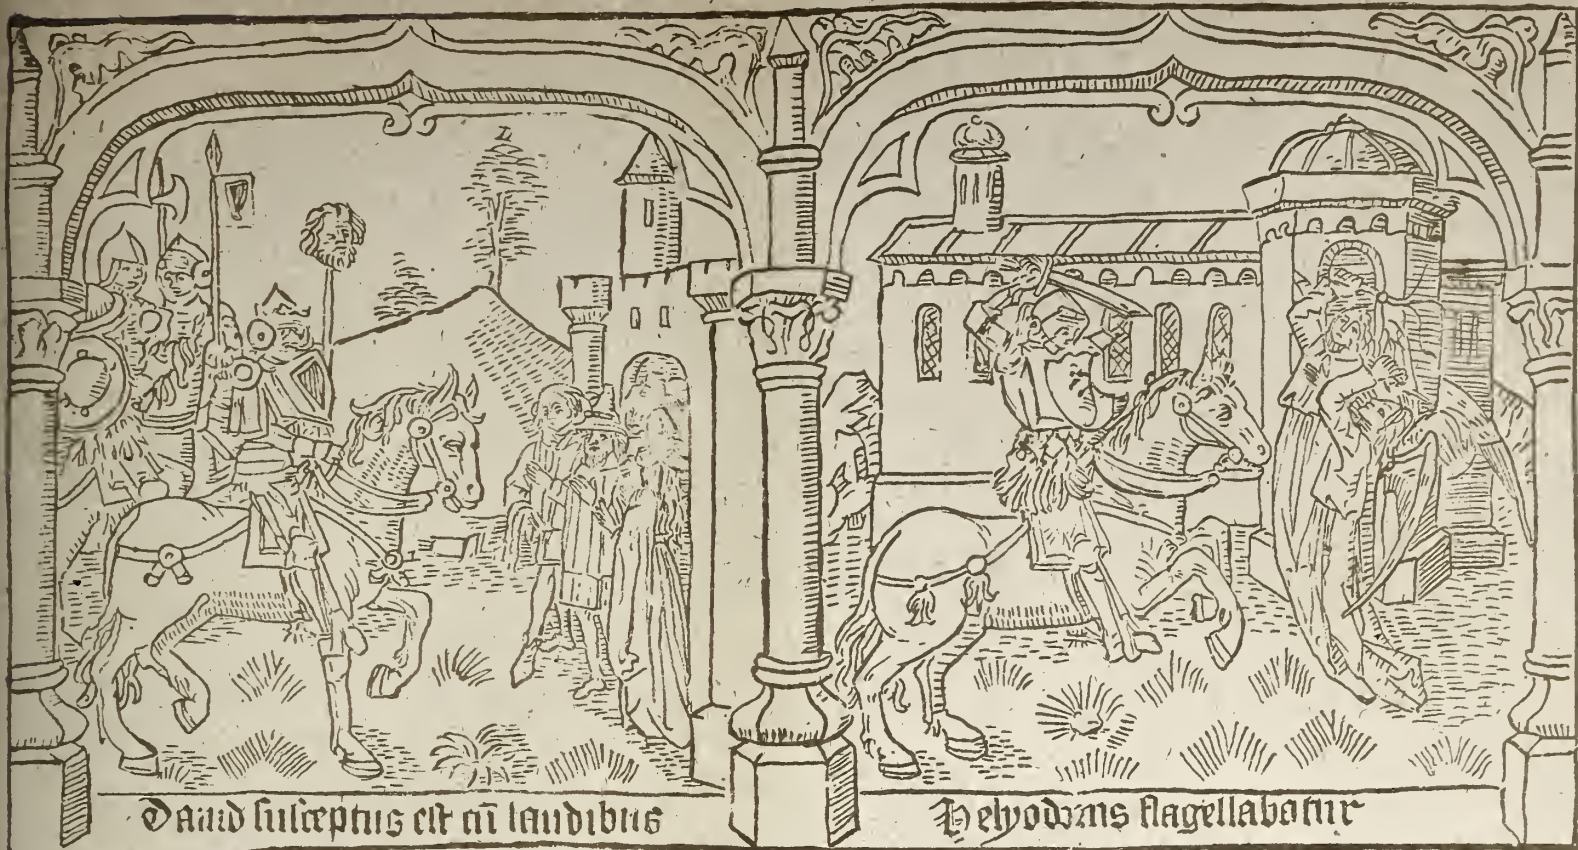 Dauid susceptus est cū laudibus
Helyodorus flagellabatur